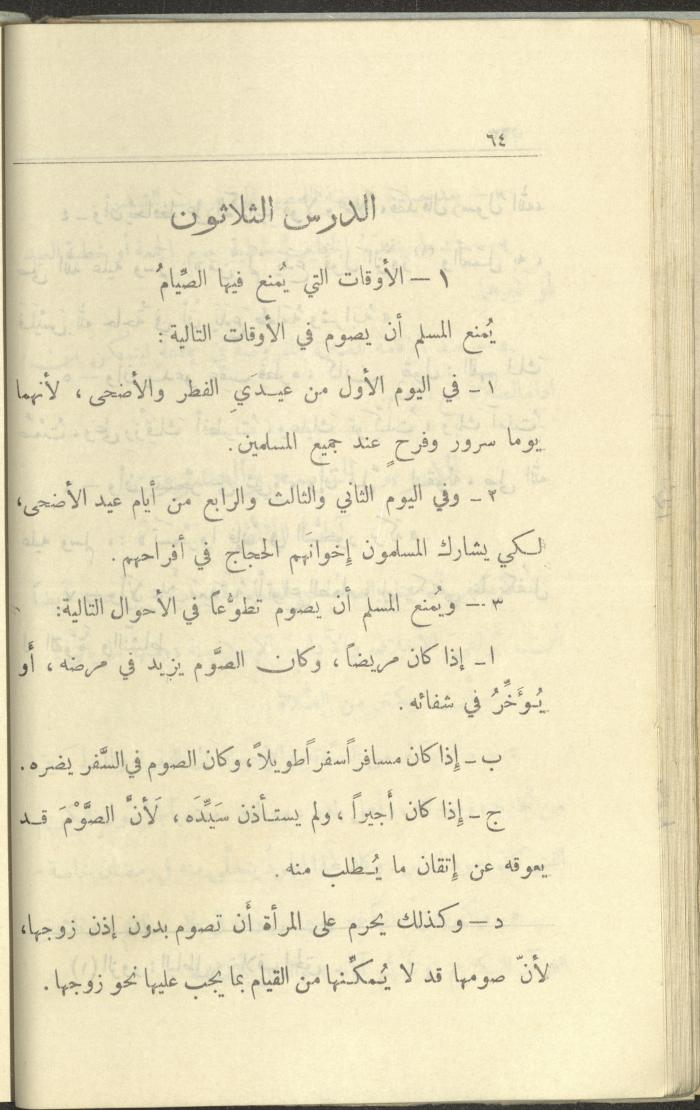 ٦٤
الدرس الثلاثون
١ — الأوقات التي يُمنع فيها الصِّيامُ
يُمنع المسلم أن يصوم في الأوقات التالية :
١ ـ في اليوم الأول من عيـدَيِ الفطر والأضحى ، لأنهما
يوما سرور وفرحٍ عند جميع المسلمين.
٢ ـ وفي اليوم الثاني والثالث والرابع من أيام عيد الأضحى،
لـكي يشارك المسلمون إِخوانَهم الحجاج في أفراحهم .
٣ — ويُمنع المسلم أن يصوم تطوُّعاً في الأحوال التالية:
ا ـ إذا كان مريضاً ، وكان الصَّوم يزيد في مرضه ، أَو
يُـؤَخِّرُ في شفائه .
ب ـ إِذا كان مسافراً سفراً طويلاً ، وكان الصوم في السَّفر يضره .
ج ـ إِذا كان أَجيراً ، ولم يستـأذن سَيِّدَه ، لَأنَّ الصَّوْمَ قـد
يعوقه عن إِتقان ما يُـطلب منه .
د — وكذلك يحرم على المرأة أَن تصوم بدون إذن زوجها،
لأنّ صومها قد لا يُـمكِّـنها من القيام بما يجب عليها نحو زوجها .